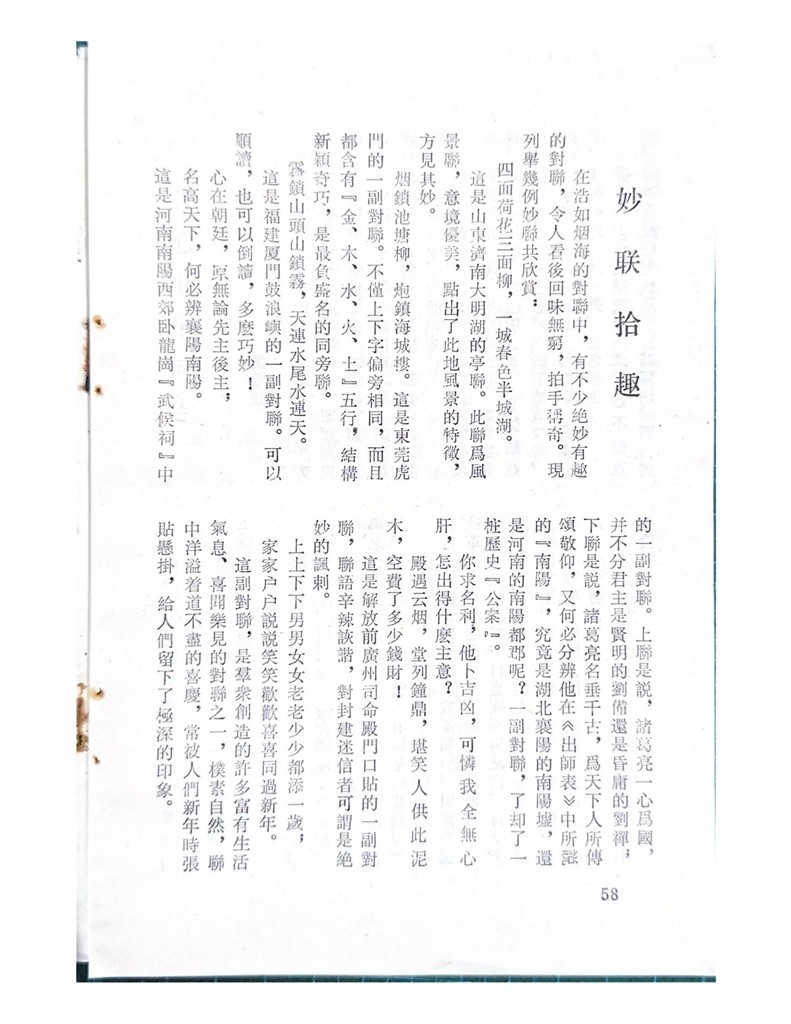 妙联拾趣
在浩如烟海的對聯中，有不少絶妙有趣
的對聯，令人看後回味無窮，拍手稱奇。現
列舉幾例妙聯共欣賞：
四面荷花三面柳，一城春色半城湖。
這是山東濟南大明湖的亭聯。此聯爲風
景聯，意境優美，點出了此地風景的特徵，
方見其妙。
烟鎖池塘柳，炮鎮海城樓。這是東莞虎
門的一副對聯。不僅上下字偏旁相同，而且
都含有『金、木、水、火、土』五行，結構
新穎奇巧，是最負盛名的同旁聯。
霧鎖山頭山鎖霧，天連水尾水連天。
這是福建厦門鼓浪嶼的一副對聯。可以
順讀，也可以倒讀，多麽巧妙！
心在朝廷，原無論先主後主；
名高天下，何必辨襄陽南陽。
這是河南南陽西郊卧龍崗『武侯祠』中
的一副對聯。上聯是説，諸葛亮一心爲國，
并不分君主是賢明的劉備還是昏庸的劉禪；
下聯是説，諸葛亮名垂千古，爲天下人所傳
頌敬仰，又何必分辨他在《出師表》中所説
的『南陽』，究竟是湖北襄陽的南陽墟，還
是河南的南陽都郡呢？一副對聯，了却了一
桩歷史『公案』。
你求名利，他卜吉凶，可憐我全無心
肝，怎出得什麽主意？
殿遇云烟，堂列鐘鼎，堪笑人供此泥
木，空費了多少錢財！
這是解放前廣州司命殿門口貼的一副對
聯，聯語辛辣詼諧，對封建迷信者可謂是絶
妙的諷刺。
上上下下男男女女老老少少都添一歲，
家家户户説説笑笑歡歡喜喜同過新年。
這副對聯，是羣衆創造的許多富有生活
氣息、喜聞樂見的對聯之一，樸素自然，聯
中洋溢着道不盡的喜慶，常被人們新年時張
貼懸掛，給人們留下了極深的印象。
58